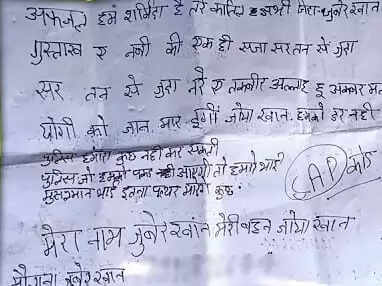 अफजल हम शर्मिंदा है तेरे कातिल जुबेर खान
गुस्ताख ए नबी की एक ही सजा सर तन से जुदा
सर तन से जुदा नारे ए तकबीर अल्लाह हु अकबर
योगी को जान मार दूंगी जोया खान हमको डर नही
पुलिस हमारा कुछ नही कर सकती
पुलिस जो हमको आएगी तो हमारे भाई
मुसलमान भाई इतना पत्थर मारेंगे कुछ
CAP कोड
मेरा नाम जुबेर खान मेरी बहन जोया खान
जुबेर खान